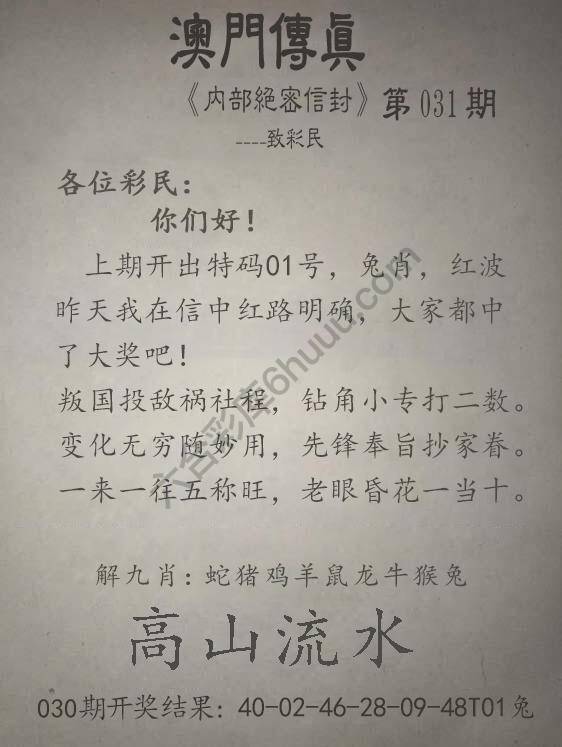 澳門傳真
《内部絕密信封》第031期
----致彩民
各位彩民：
你们好！
上期开出特码01号，兔肖，红波
昨天我在信中红路明确，大家都中
了大奖吧！
叛国投敌祸社程，钻角小专打二数。
变化无穷随妙用，先锋奉旨抄家眷。
一来一往五称旺，老眼昏花一当十。
解九肖：蛇猪鸡羊鼠龙牛猴兔
高山流水
030期开奖结果：40-02-46-28-09-48T01兔
六合彩库6huuu.com